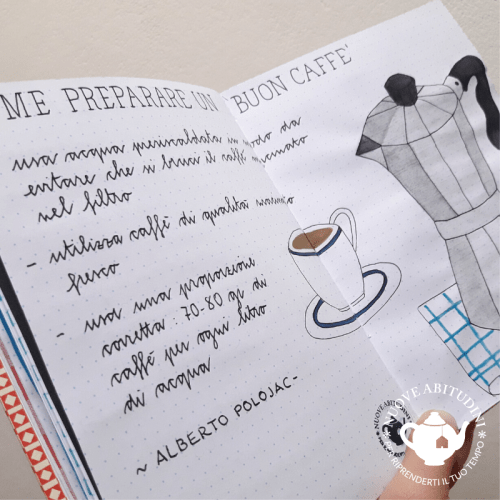 ME PREPARARE UN BUON CAFFE'
usa acqua preriscaldata in modo da
evitare che si bruci il caffè macinato
nel filtro
- utilizza caffè di qualità macinato
fresco
- usa una proporzione
corretta : 70-80 gr di
caffè per ogni litro
di acqua
~ ALBERTO POLOJAC-
NUOVE ABITUDINI
RIPRENDERTI IL TUO TEMPO